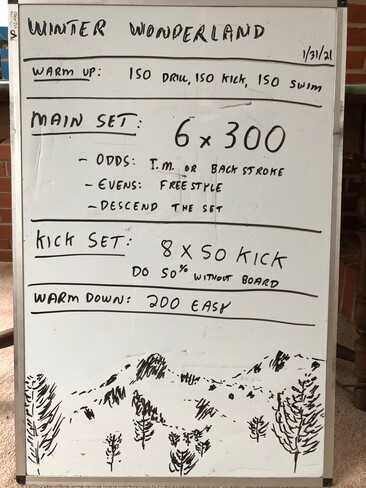 WINTER WONDERLAND
1/31/21
WARM UP: 150 DRILL, 150 KICK, 150 SWIM
MAIN SET: 6 x 300
- ODDS: I.M. OR BACKSTROKE
- EVENS: FREESTYLE
- DESCEND THE SET
KICK SET: 8 X 50 KICK
DO 50% WITHOUT BOARD
WARM DOWN: 200 EASY